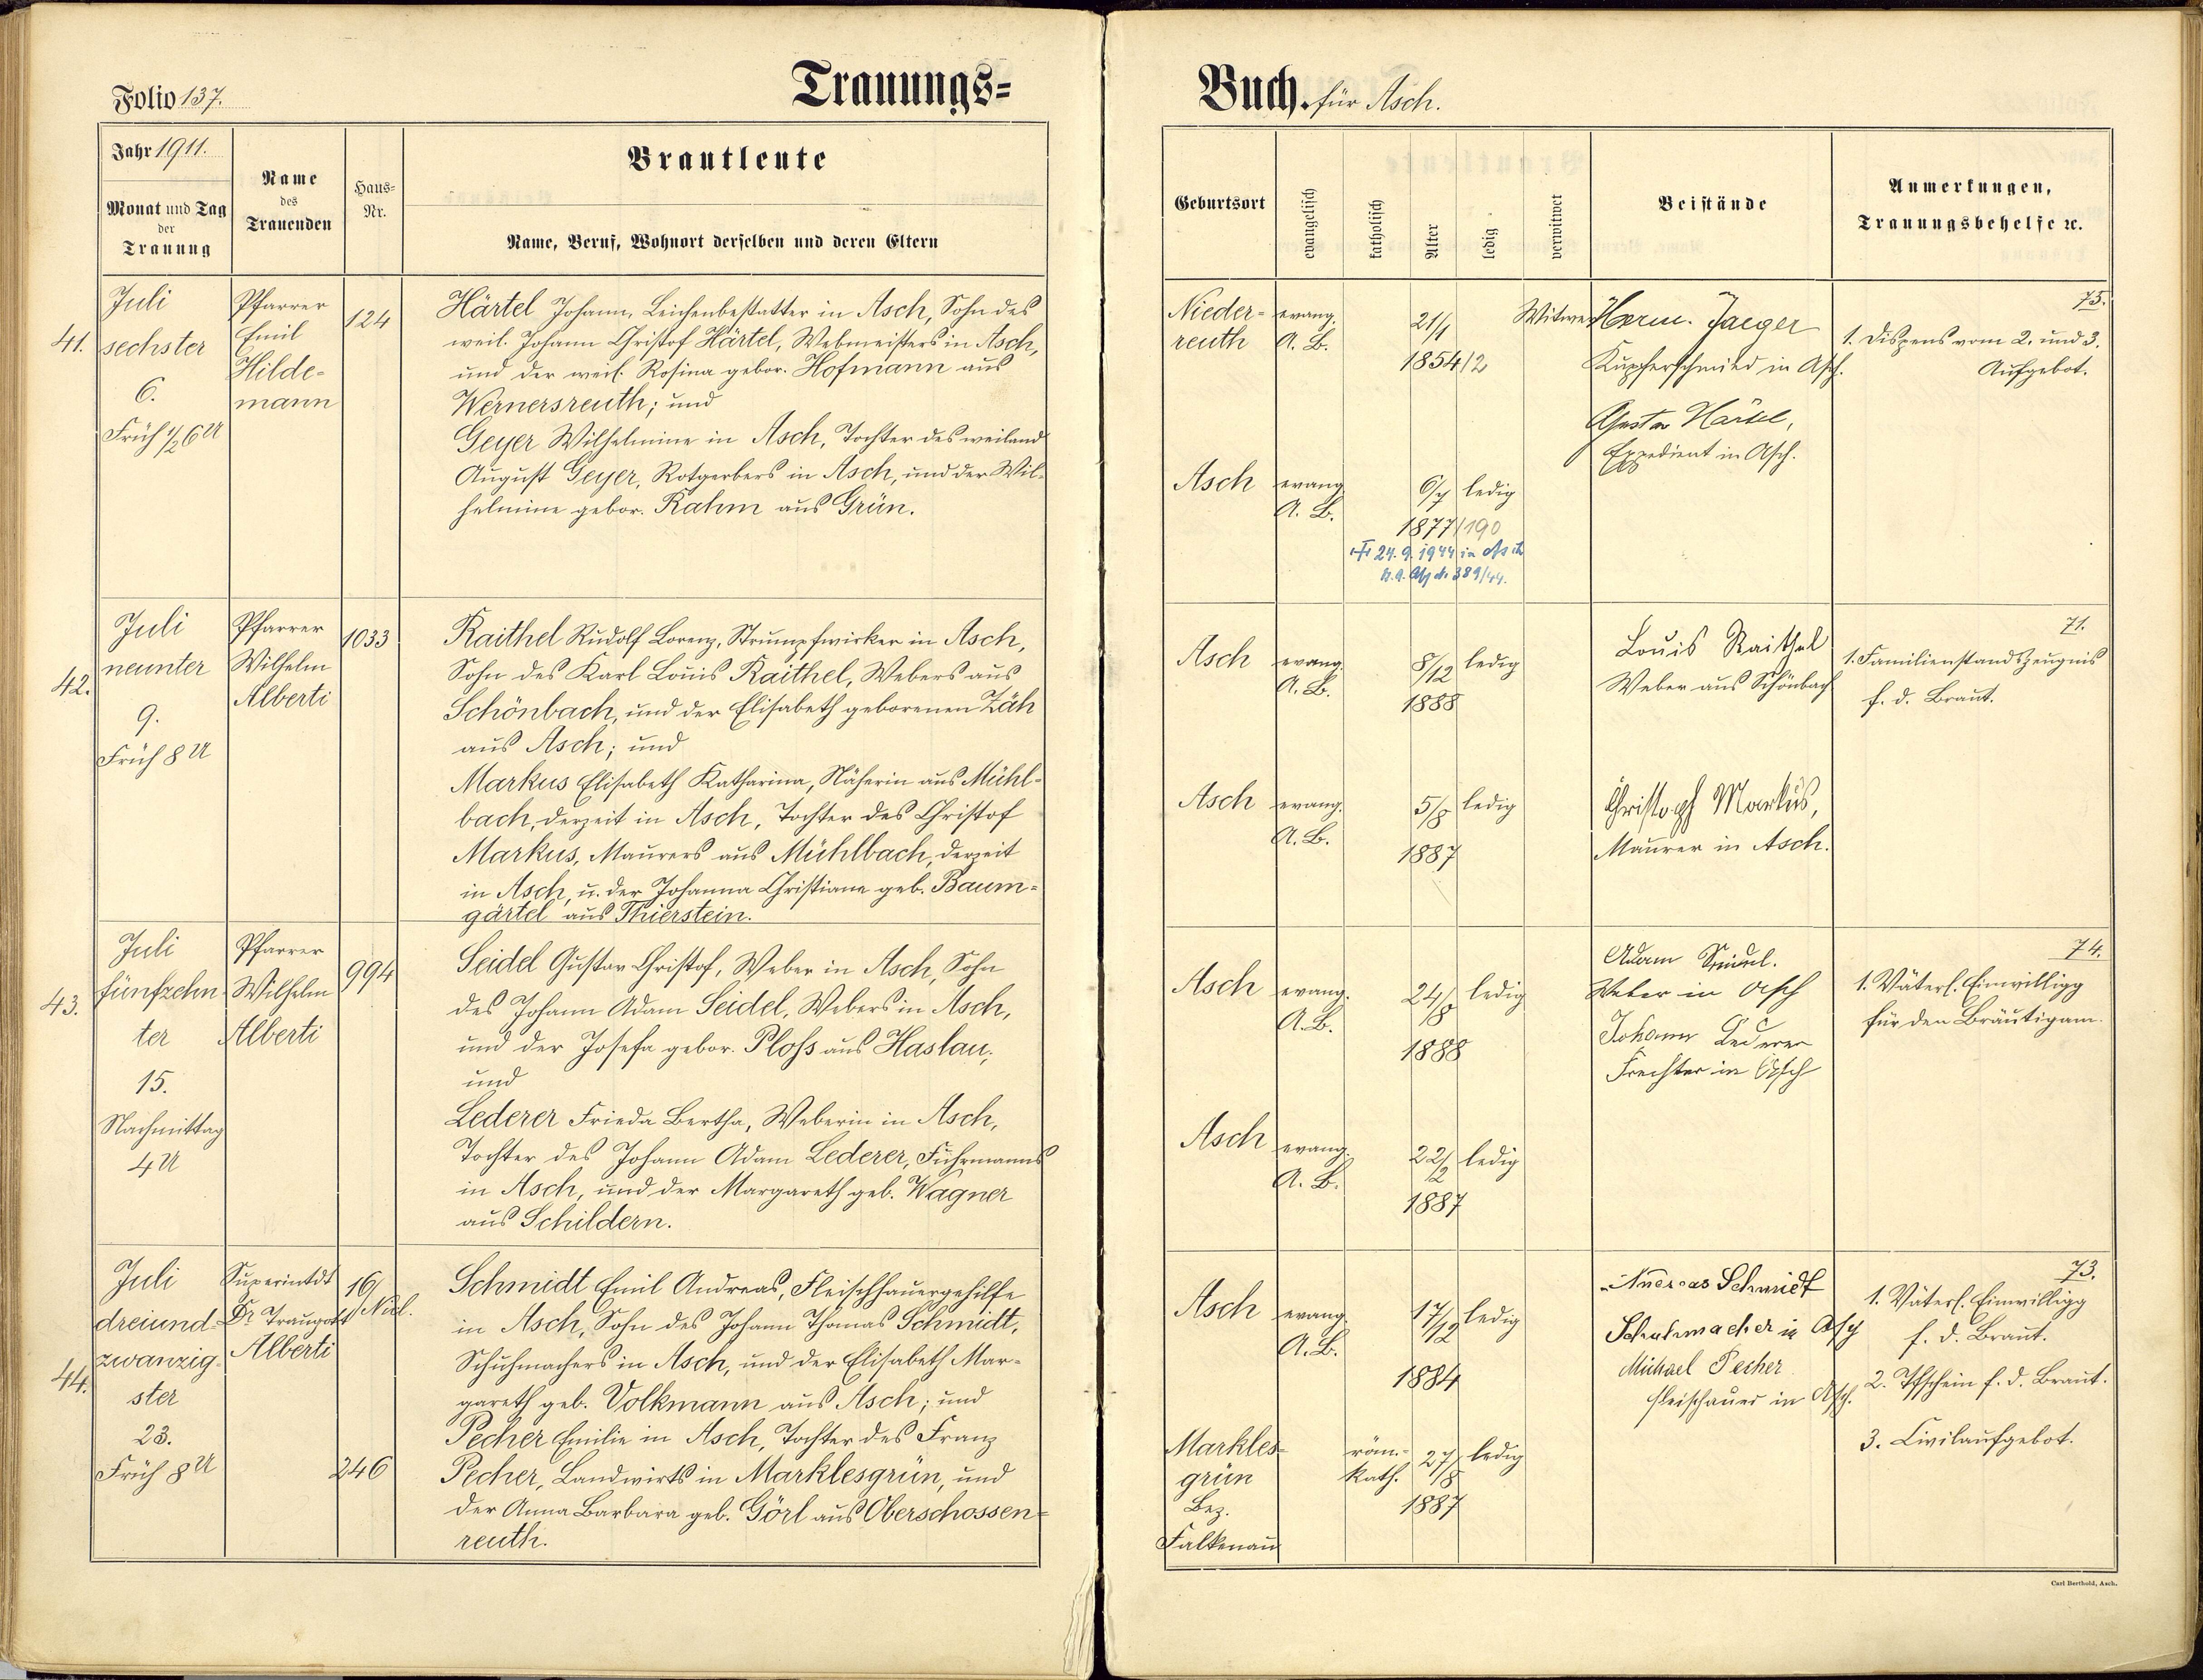 Folio 137.
Trauungs=
Jahr 1911.
Monat und Tag
der
Trauung
Name
des
Trauenden
Haus=
Nr.
Brautleute
Name, Beruf, Wohnort derselben und deren Eltern
41.
Juli
sechster
6.
Früh ½6 U
Pfarrer
Emil
Hilde-
mann
124
Härtel Johann, Leichenbestatter in Asch, Sohn des
weil. Johann Christof Härtel, Webmeisters in Asch,
und der weil. Rosina gebor. Hofmann aus
Wernersreuth; und
Geyer Wilhelmine in Asch, Tochter des weiland
August Geyer, Rotgerbers in Asch, und der Wil-
helmine gebor. Rahm aus Grün.
42.
Juli
neunter
9.
Früh 8 U
Pfarrer
Wilhelm
Alberti
1033
Raithel Rudolf Lorenz, Strumpfwirker in Asch,
Sohn des Karl Louis Raithel, Webers aus
Schönbach, und der Elisabeth geborenen Zäh
aus Asch; und
Markus Elisabeth Katharina, Näherin aus Mühl-
bach, derzeit in Asch, Tochter des Christof
Markus, Maurers aus Mühlbach, derzeit
in Asch, u. der Johanna Christiane geb. Baum-
gärtel aus Thierstein.
43.
Juli
fünfzehn-
ter
15.
Nachmittag
4 U
Pfarrer
Wilhelm
Alberti
994
Seidel Gustav Christof, Weber in Asch, Sohn
des Johann Adam Seidel, Webers in Asch,
und der Josefa gebor. Ploss aus Haslau;
und
Lederer Frieda Bertha, Weberin in Asch,
Tochter des Johann Adam Lederer, Fuhrmanns
in Asch, und der Margareth geb. Wagner
aus Schildern.
44.
Juli
dreiund-
zwanzig-
ster
23.
Früh 8 U
Superintdt
Dr. Traugott
Alberti
16/
246
Schmidt Emil Andreas, Fleischhauergehilfe
in Asch, Sohn des Johann Thomas Schmidt,
Schuhmachers in Asch, und der Elisabeth Mar-
gareth geb. Volkmann aus Asch; und
Pecher Emilie in Asch, Tochter des Franz
Pecher, Landwirts in Marklesgrün, und
der Anna Barbara geb. Görl aus Oberschossen-
reuth.
Buch. für Asch.
Geburtsort
evangelisch
katholisch
Alter
ledig
verwitwet
Beistände
Anmerkungen,
Trauungsbehelfe ꝛc.
Nieder-
reuth
evang.
A. B.
21/1
1854/2
Witwer
Herm. Jaeger
Kupferschmied in Asch.
Gustav Härtel,
Expedient in Asch.
75.
1. Dispens vom 2. und 3.
Aufgebot.
Asch
evang.
A. B.
6/7
1877/190
ledig
24.9.1944 in Asch
389/44.
Asch
evang.
A. B.
8/12
1888
ledig
Louis Raithel
Weber aus Schönbach
71.
1. Familienstandszeugnis
f. d. Braut.
Asch
evang.
A. B.
5/8
1887
ledig
Christoph Markus,
Maurer in Asch.
Asch
evang.
A. B.
24/8
1888
ledig
Adam Seidel.
Weber in Asch
Johann Lederer
in Asch
74.
1. Väterl. Einwilligg
für den Bräutigam.
Asch
evang.
A. B.
22/2
1887
ledig
Asch
evang.
A. B.
17/12
1884
ledig
Andreas Schmidt
Schuhmacher in Asch
Michael Pecher
Fleischauer in Asch.
73.
1. Väterl. Einwilligg
f. d. Braut.
2. Tfschein f. d. Braut.
3. Civilaufgebot.
Markles-
grün
Bez.
Falkenau
röm.-
kath.
27/8
1887
ledig
Carl Berthold, Asch.